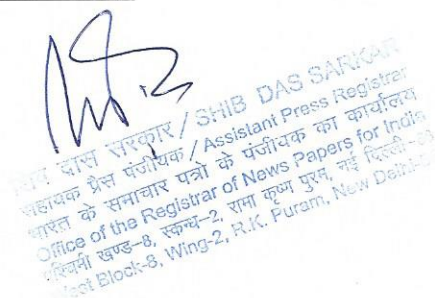 शिव दास सरकार / SHIB DAS SARKAR
सहायक प्रेस पंजीयक / Assistant Press Registrar
भारत के समाचार पत्रों के पंजीयक का कार्यालय
Office of the Registrar of News Papers for India
पश्चिमी खण्ड-8, स्कन्ध-2, रामा कृष्ण पुरम, नई दिल्ली-
West Block-8, Wing-2, R.K. Puram, New Delhi-